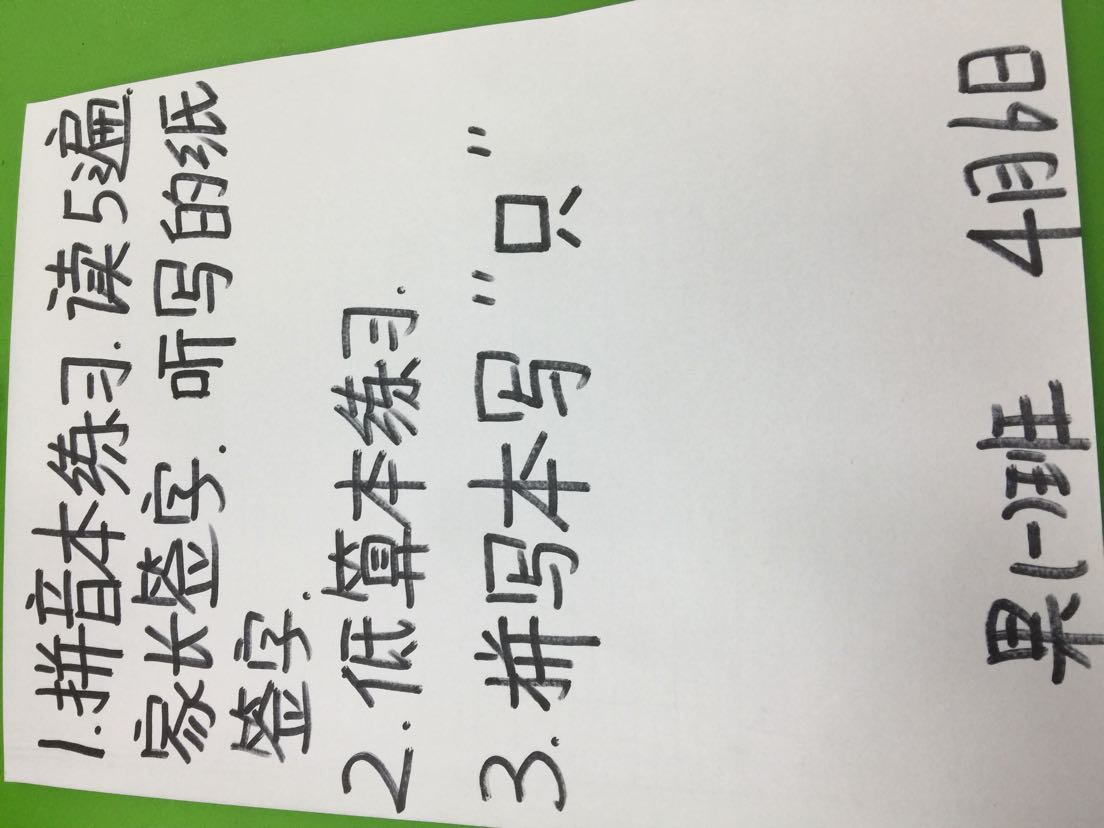 1.拼音本练习.读5遍.
家长签字.听写的纸
签字.
2.低算本练习.
3.拼写本写"只"
果(一)班 4月6日